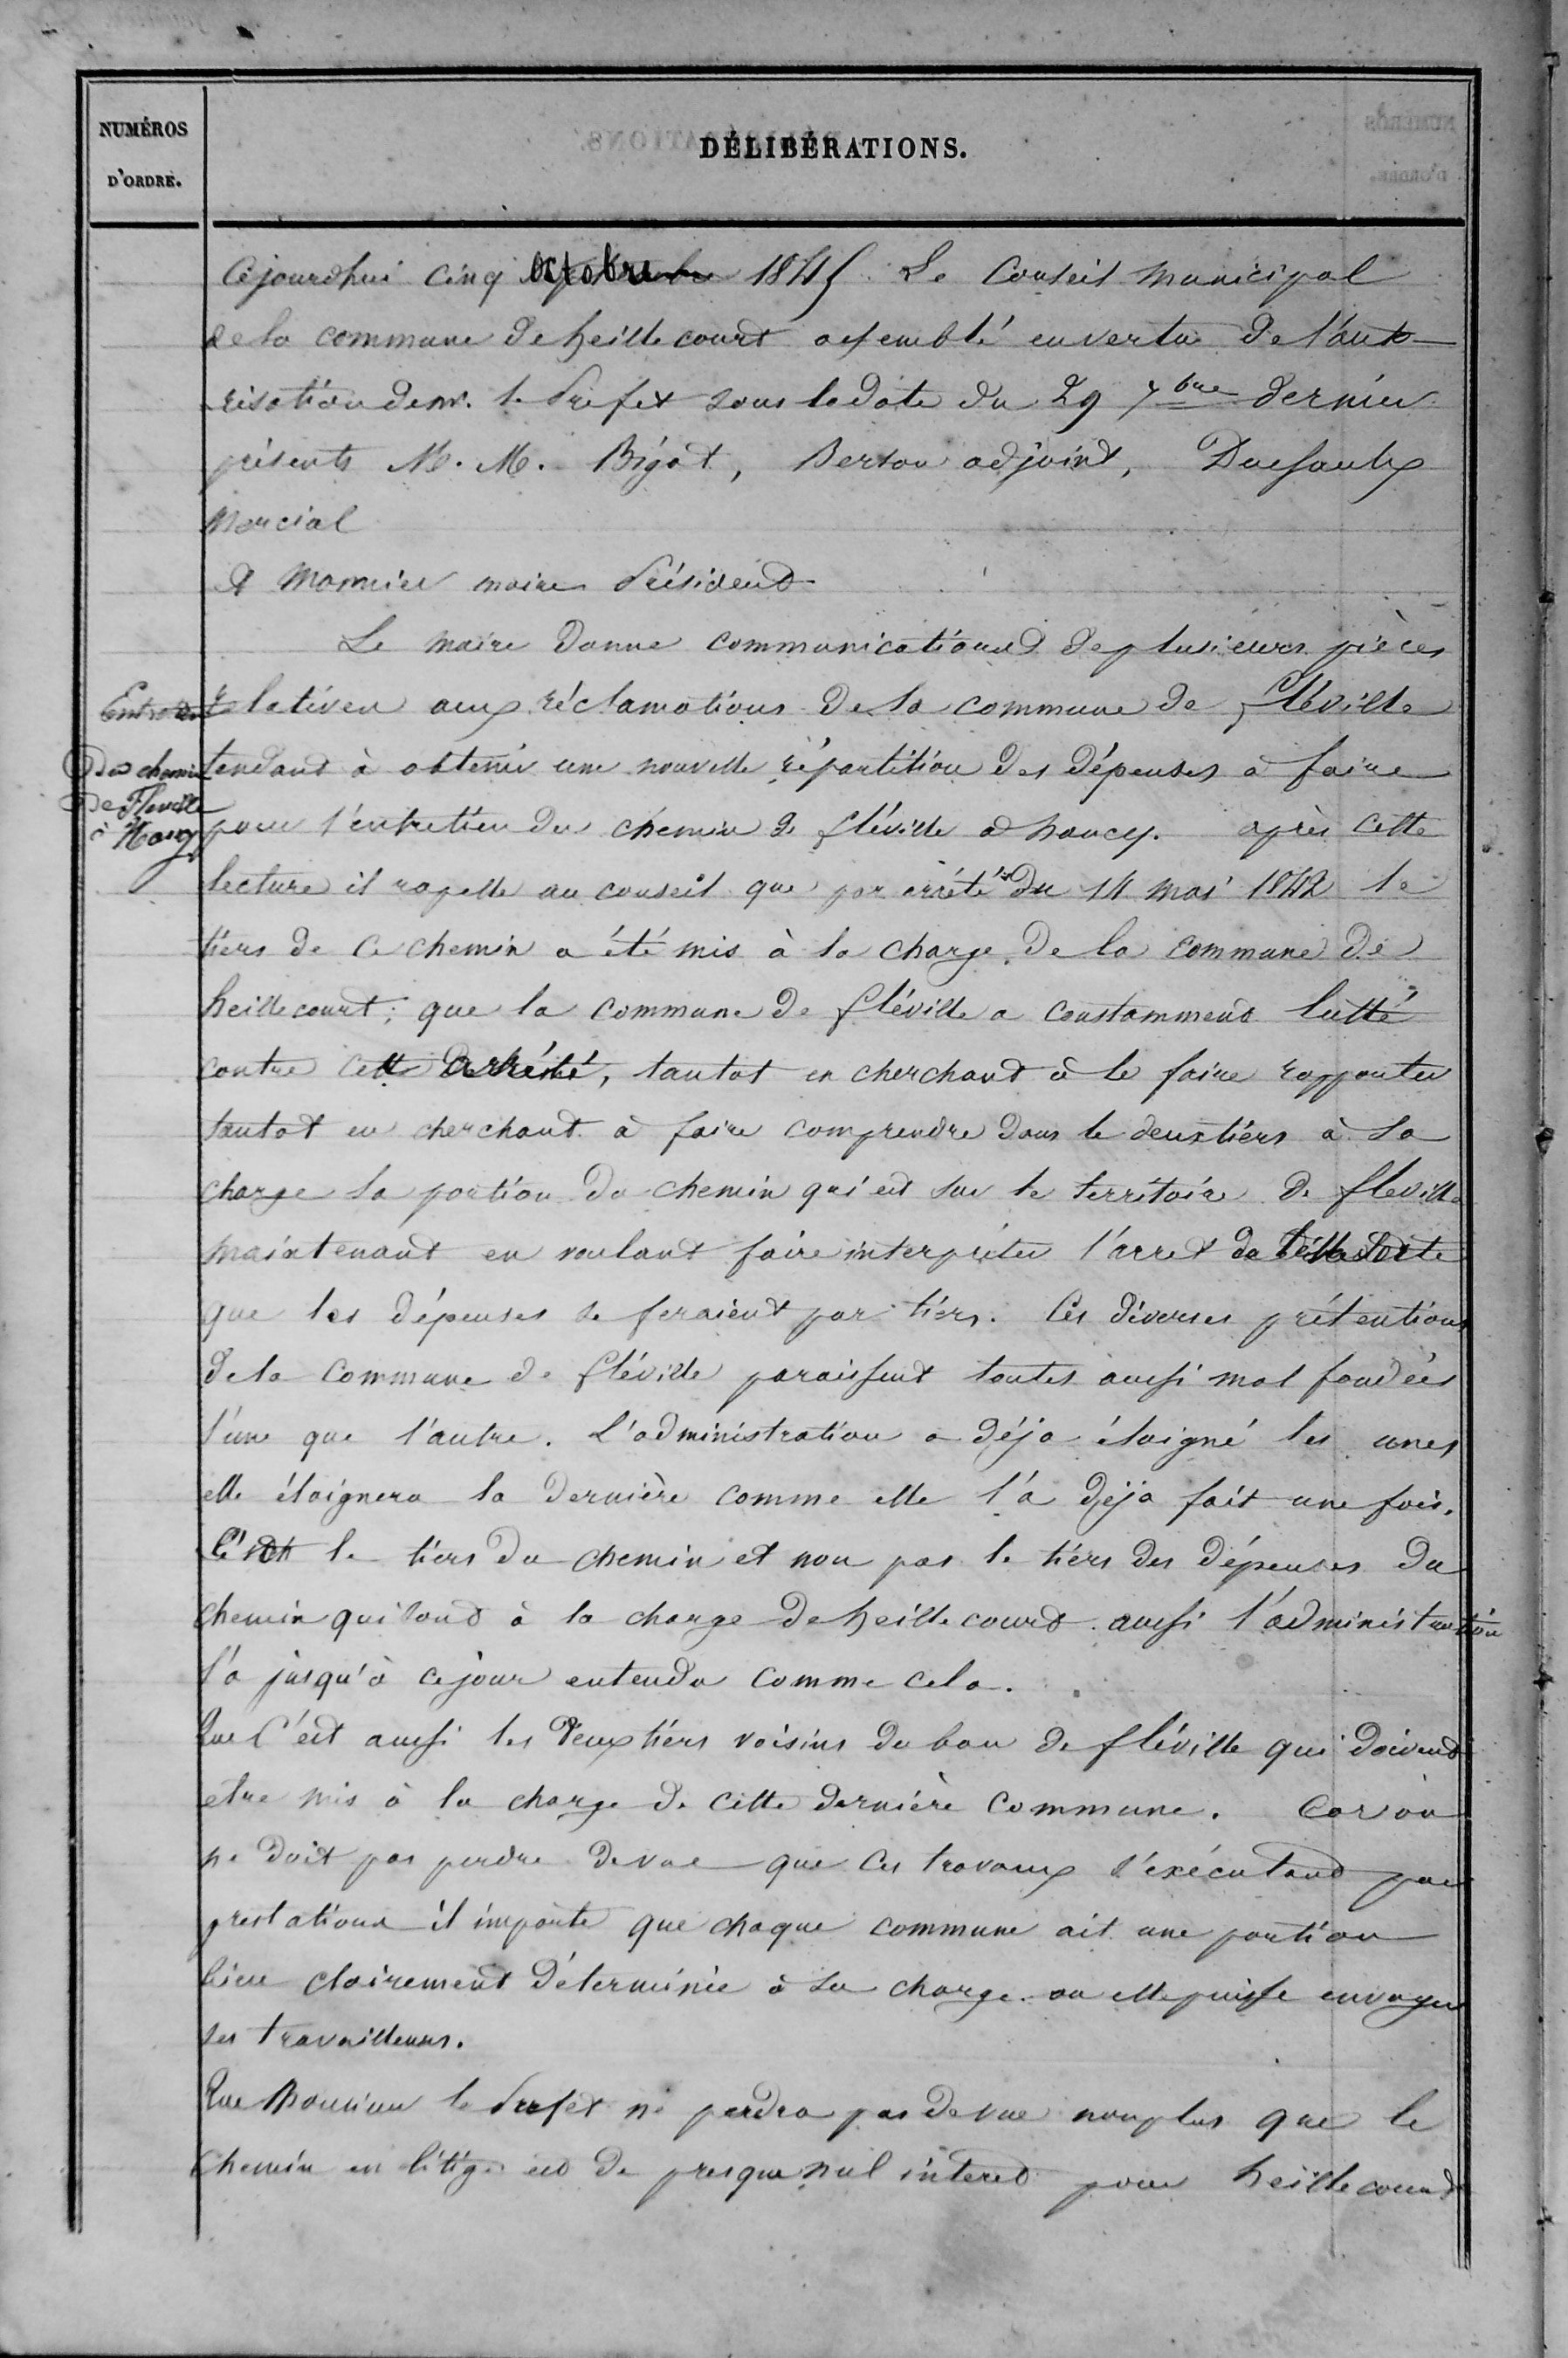 NUMÉROS
D'ORDRE.
DÉLIBÉRATIONS.
Cejourdhui cinq octobre 1845 Le Conseil municipal
de la commune de heillecourt assemblé en vertu de l'auto
risation de mr. le Préfet sous la date du 29 7bre dernier
présents M. M. Bigot, Berton adjoint, Dussaulx
Marcial
& Monnier maire Président
Le maire donne communication de plusieurs pièces
relatives aux réclamations de la commune de fléville
tendant à obtenir une nouvelle répartition des dépenses à faire
pour l'entretien du chemin de fléville à nancy. après cette
lecture il rapelle au conseil que par arrêté du 14 mai 1842 le
tiers de ce chemin a été mis à la charge de la commune de
heillecourt; que la commune de fléville a constamment lutté
contre cet arrêté, tantot en cherchant à le faire rapporter
tantot en cherchant à faire comprendre dans le deux tiers à sa
charge la portion du chemin qui est sur le territoire de fleville
maintenant en voulant faire interpréter l'arret de telle sorte
que les dépenses se feraient par tiers. Ces diverses prétentions
de la commune de fléville paraissent toutes aussi mal fondées
l'une que l'autre. L'administration a déja éloigné les unes
elle éloignera la dernière comme elle l'a déja fait une fois.
C'est le tiers du chemin et non pas le tiers des dépenses du
chemin qui sont à la charge de heillecourt. aussi l'administration
l'a jusqu'à ce jour entendu comme cela.
Que C'est aussi les deux tiers voisins du ban de fléville qui doivent
etre mis à la charge de cette dernière commune. Car on
ne doit pas perdre de vue que ces travaux s'exécutant par
prestations il importe que chaque commune ait une portion
bien clairement déterminée à sa charge ou elle puisse envoyer
ses travailleurs.
Que Monsieur le Prefet ne perdra pas de vue non plus que le
Chemin en litige est de presque nul interet pour heillecourt
Entretien
du chemin
de Fleville
à Nancy